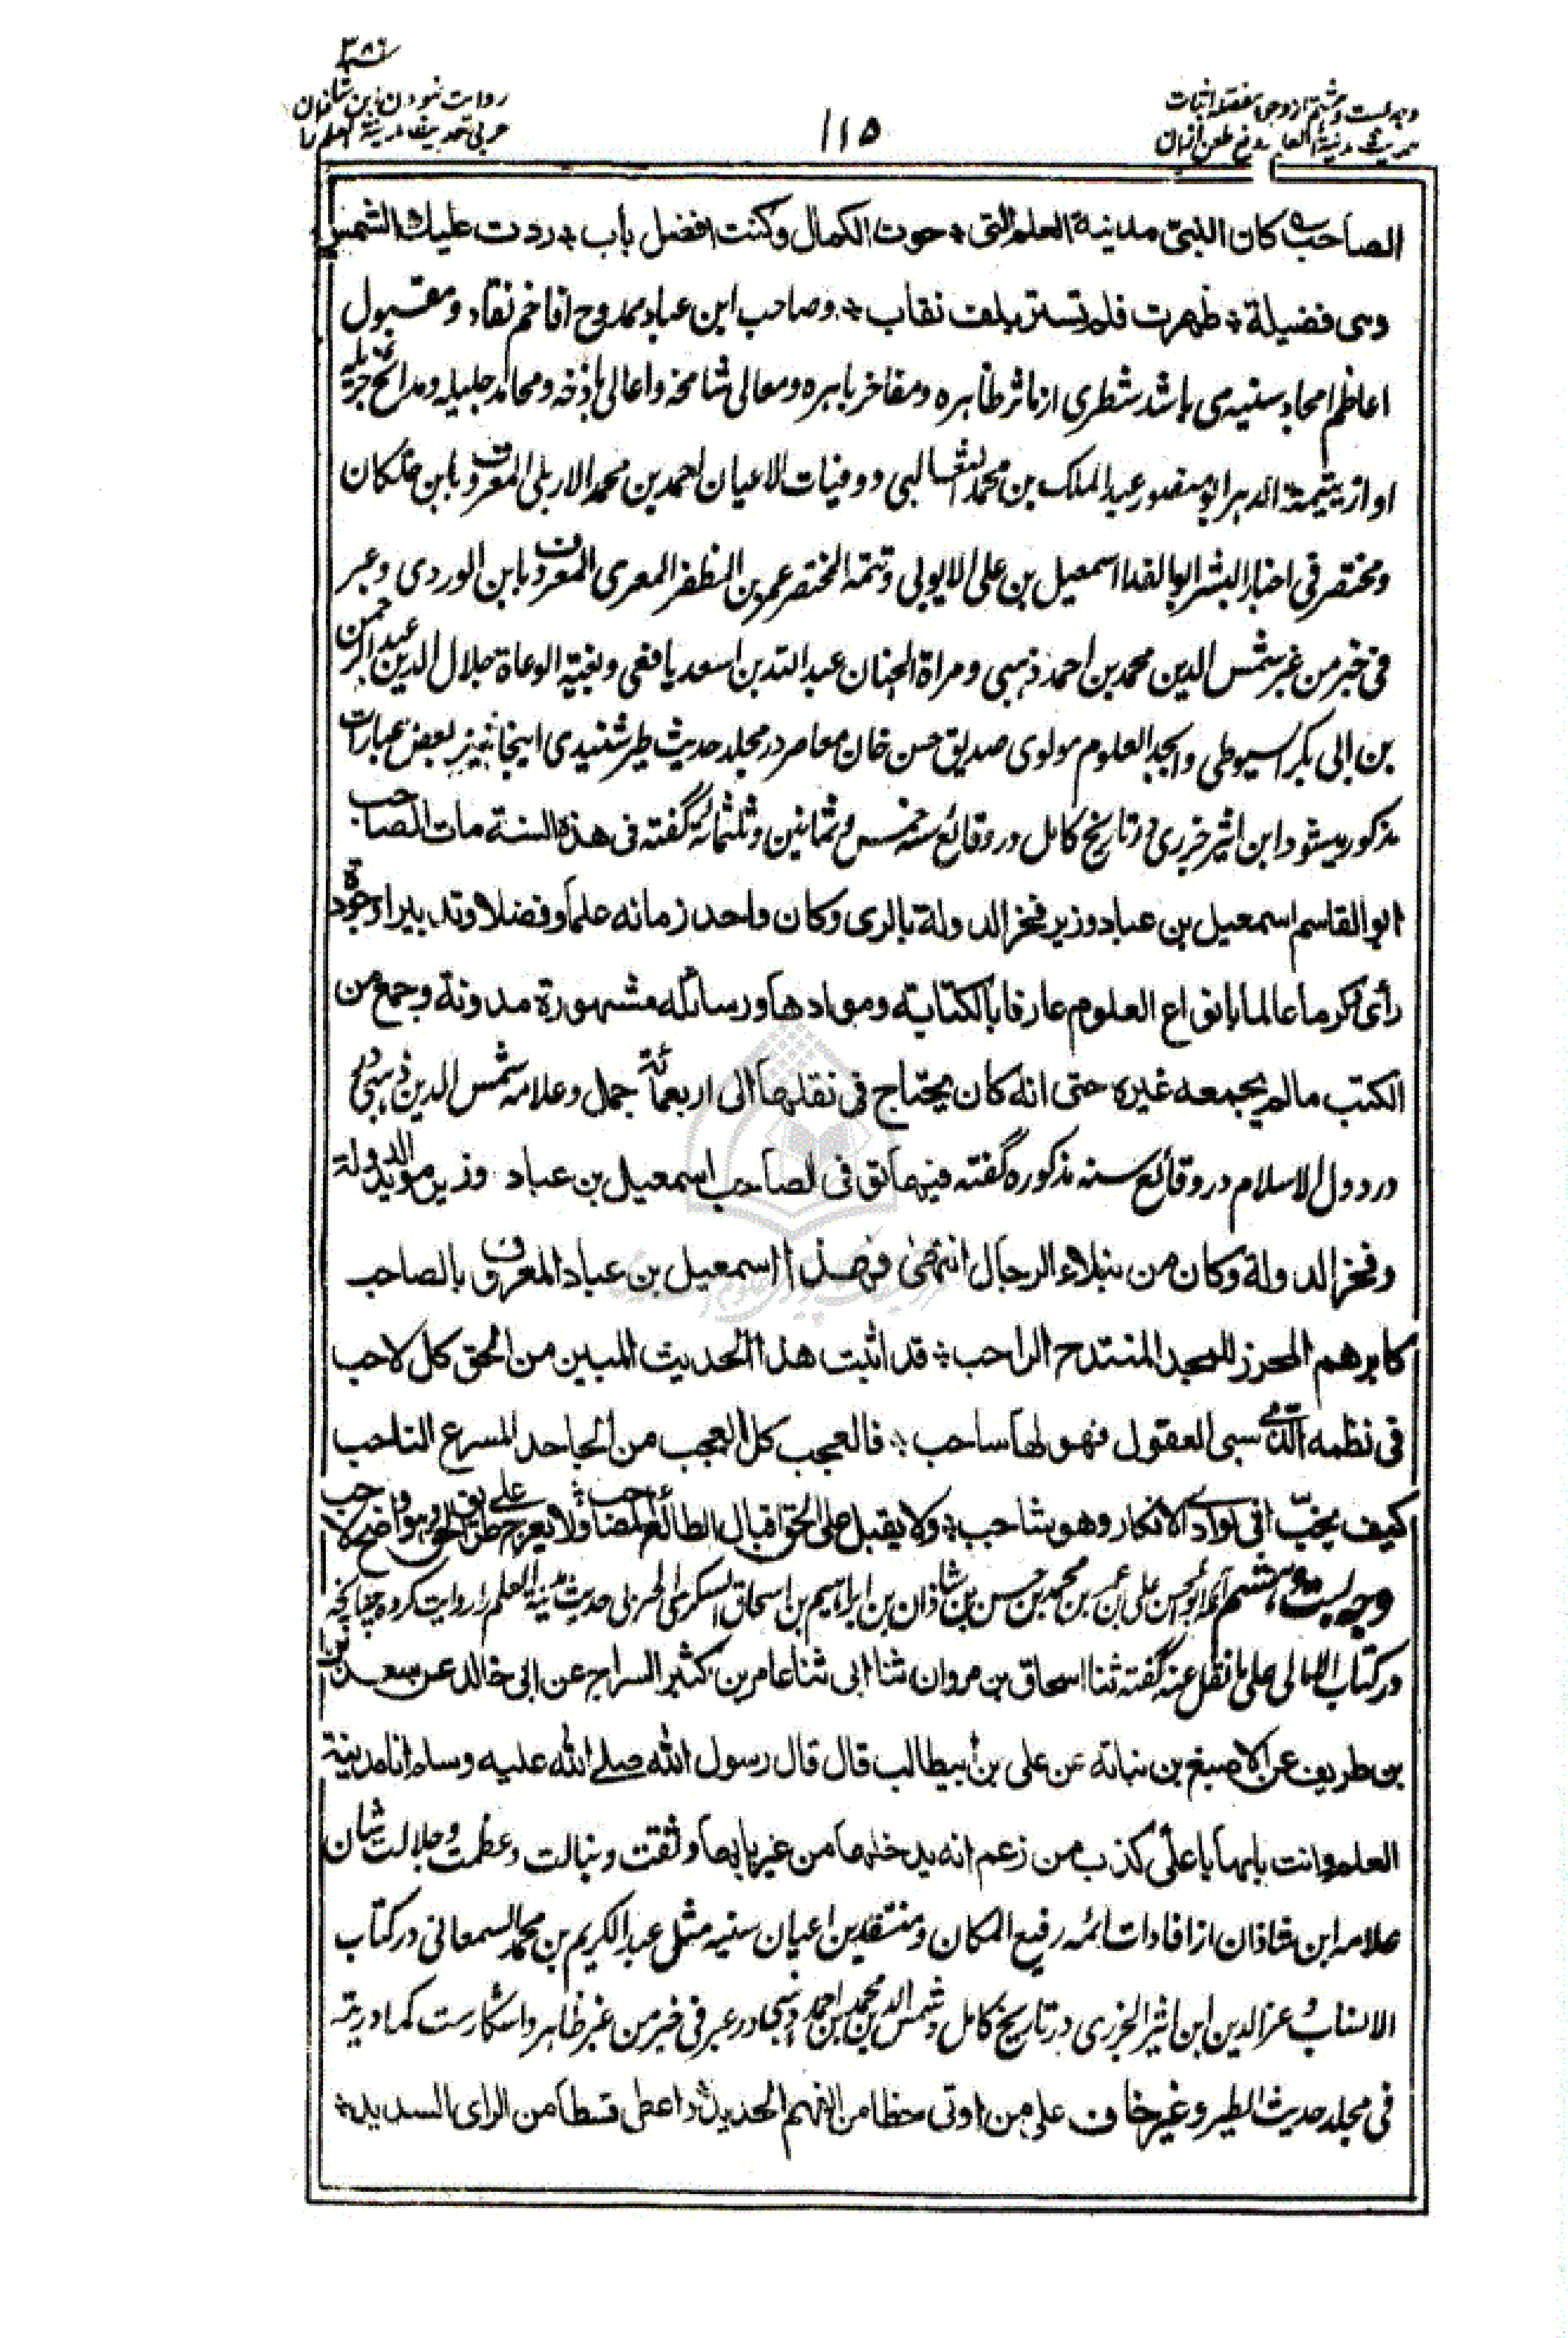 ۳۸۶
روایت نمودن ابن شاذان
حربی حدیث مدینة العلم را
۱۱۵
وجه بست و هشتم از وجوه مفصله اثبات
حدیث مدینة العلم بدفع طعن از شان
الصاحب ه کان النبی مدینة العلم التی * حوت الکمال وکنت افضل باب * ردت علیك الشمس
وهی فضیلة * ظهرت فلم تستتر بلف نقاب * وصاحب ابن عباد ممدوح افاخم نقاد و مقبول
اعاظم امجاد سنیه می باشد شطری از مآثر طاهره ومفاخر باهره ومعالی شامخه واعالی باذخه ومحامد جلیله ومدائح جزیله
او از یتیمة الدهر ابو منصور عبد الملک بن محمد الثعالبی و وفیات الاعیان احمد بن محمد الاربلی المعروف بابن خلکان
ومختصر فی اخبار البشر ابو الفدا اسمعیل بن علی الایوبی و تتمة المختصر عمر بن المظفر المعری المعروف بابن الوردی وعبر
فی خبر من غبر شمس الدین محمد بن احمد ذهبی ومراة الجنان عبد الله بن اسعد یافعی وبغیة الوعاة جلال الدین عبد الرحمن
بن ابی بکر السیوطی وابجد العلوم مولوی صدیق حسن خان معاصر در مجلد حدیث طیر شنیدی اینجا نیز بعض عبارات
مذکور میشود ابن اثیر جزری در تاریخ کامل در وقائع سنه خمس وثمانین وثلثمائة گفته فی هذه السنة مات الصاحب
ابو القاسم اسمعیل بن عباد وزیر فخر الدولة بالری وکان واحد زمانه علماً وفضلا وتدبیرا وجودة
رأی وکرما عالما بانواع العلوم عارفا بالکتابة وموادها ورسائله مشهورة مدونة وجمع من
الکتب مالم یجمعه غیره حتی انه کان یحتاج فی نقلها الی اربعمائة جمل وعلامه شمس الدین ذهبی
در دول الاسلام در وقائع سنه مذکوره گفته فیها توفی الصاحب اسمعیل بن عباد وزیر موید الدولة
وفخر الدولة وکان من نبلاء الرجال انتهی فهذا اسمعیل بن عباد المعروف بالصاحب
کابرهم المحرز للمجد المنتدح الراحب * قد اثبت هذا الحدیث المبین من الحق کل لاحب
فی نظمه الذی سبی العقول فهو لها ساحب * فالعجب کل العجب من الجاحد المسرع الناحب
کیف یخب فی بوادی الانکار وهو شاحب * ولا یقبل علی الحق اقبال الطائع المصاحب * ولا یعرج علی طریق الحق وهو واضح لاحب
وجه بست و هشتم آنکه ابو الحسن علی بن عمر بن محمد بن حسن بن شاذان بن ابراهیم بن اسحاق السکری الحربی حدیث مدینة العلم را روایت کرده چنانچه
در کتاب الامالی علی ما نقل عنه گفته ثنا اسحاق بن مروان ثنا ابی ثنا عامر بن کثیر السراج عن ابی خالد عن سعد
بن طریف عن الاصبغ بن نباتة عن علی بن أبیطالب قال قال رسول الله صلے الله علیه وسلم انا مدینة
العلم وانت بابها یا علی کذب من زعم انه یدخلها من غیر بابها وثقت ونبالت وعظمت وجلالت شان
علامه ابن شاذان از افادات ائمه رفیع المکان ومنتقدین اعیان سنیه مثل عبد الکریم بن محمد السمعانی در کتاب
الانساب وعز الدین ابن اثیر الجزری در تاریخ کامل وشمس الدین محمد بن احمد ذهبی در عبر فی خبر من غبر ظاهر واشکارست کما دریته
فی مجلد حدیث الطیر وغیر خاف علی من اوتی حظا من الفهم الحدید * واعطی قسطا من الرای السدید *